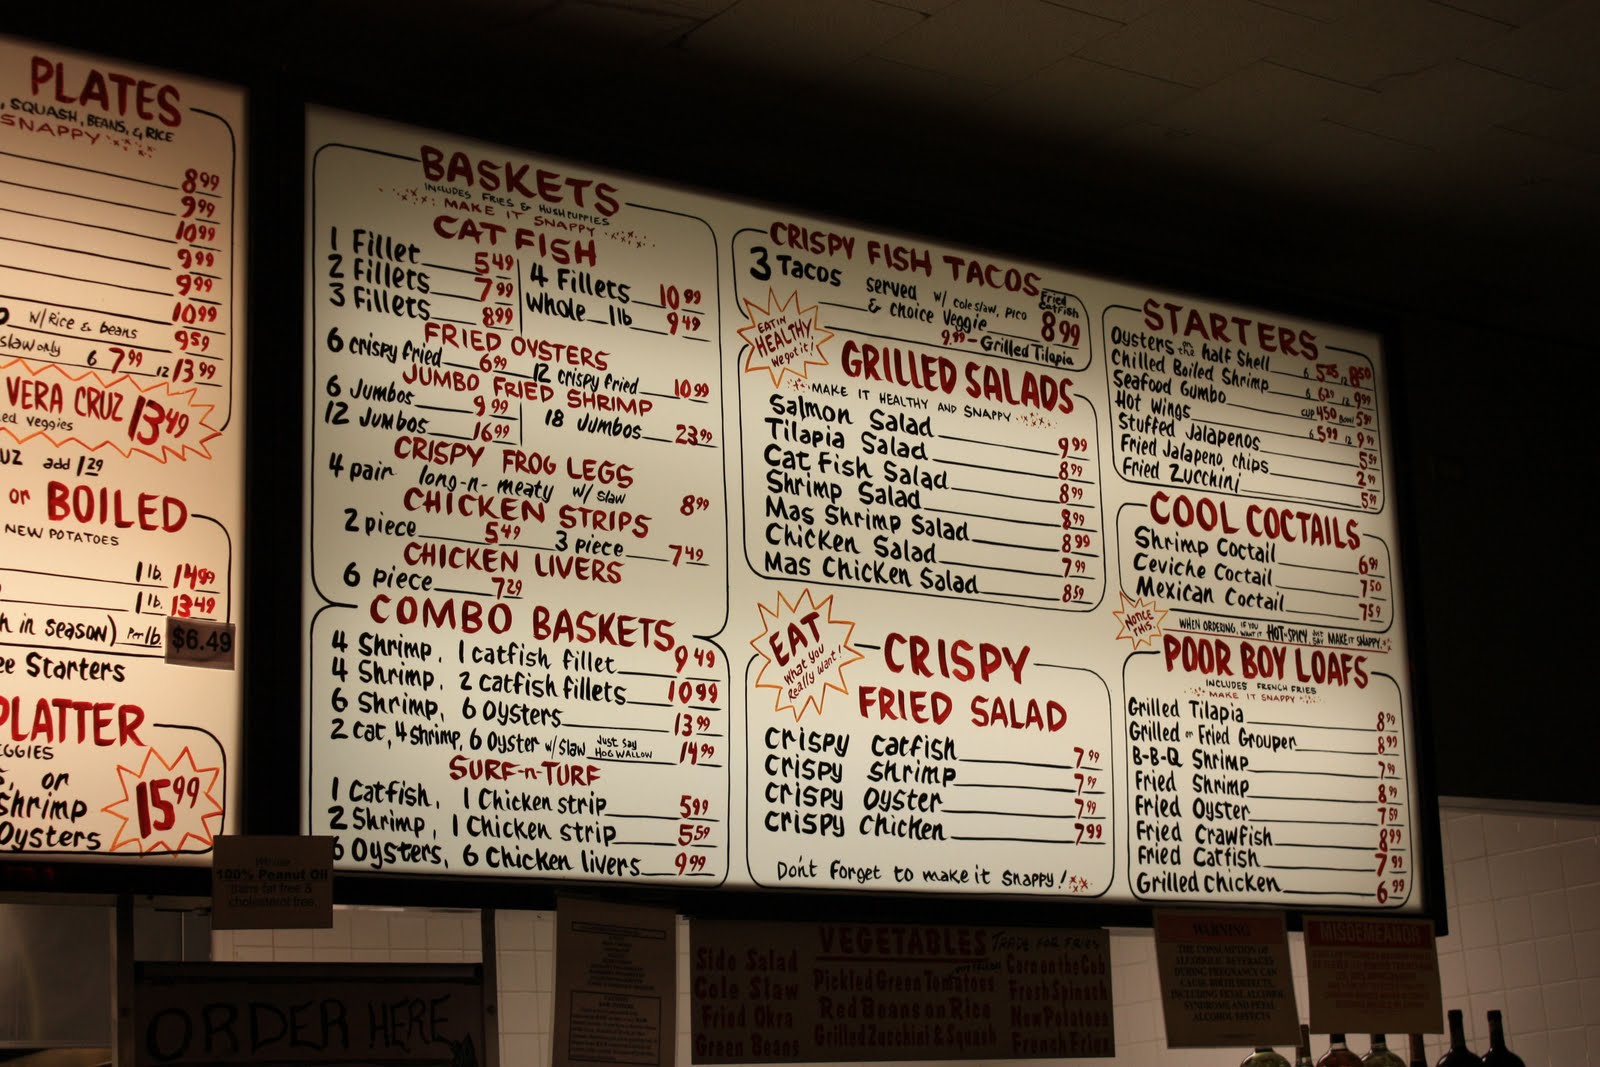 PLATES
, SQUASH, BEANS, & RICE
SNAPPY
8 99
9 99
10 99
9 99
9 99
10 99
W/Rice & beans 9 59
slaw only 6 7 99 12 13 99
VERA CRUZ 13 49
ed veggies
UZ add 1 29
or BOILED
NEW POTATOES
1 lb. 14 99
1 lb. 13 49
h in season) Per lb. $6.49
ee Starters
PLATTER
EGGIES
, or
Shrimp
Oysters
15 99
BASKETS
INCLUDES FRIES & HUSHPUPPIES
MAKE IT SNAPPY
CAT FISH
1 Fillet 5 49
2 Fillets 7 99
3 Fillets 8 99
4 Fillets 10 99
Whole 1 lb 9 49
FRIED OYSTERS
6 crispy fried 6 99 12 crispy fried 10 99
JUMBO FRIED SHRIMP
6 Jumbos 9 99
12 Jumbos 16 99
18 Jumbos 23 99
CRISPY FROG LEGS
4 pair long-n-meaty w/ slaw 8 99
CHICKEN STRIPS
2 piece 5 49 3 piece 7 49
CHICKEN LIVERS
6 piece 7 29
COMBO BASKETS
4 Shrimp, 1 catfish fillet 9 49
4 Shrimp, 2 catfish fillets 10 99
6 Shrimp, 6 Oysters 13 99
2 cat, 4 shrimp, 6 Oyster w/ Slaw Just Say HOG WALLOW 14 99
SURF-n-TURF
1 Catfish, 1 Chicken strip 5 99
2 Shrimp, 1 Chicken strip 5 59
6 Oysters, 6 Chicken livers 9 99
CRISPY FISH TACOS
3 Tacos served w/ cole slaw, Pico Fried Catfish
& choice Veggie 8 99
9.99 - Grilled Tilapia
EATIN HEALTHY We got it!
GRILLED SALADS
MAKE IT HEALTHY AND SNAPPY
Salmon Salad 9 99
Tilapia Salad 8 99
Cat Fish Salad 8 99
Shrimp Salad 8 99
Mas Shrimp Salad 8 99
Chicken Salad 7 99
Mas Chicken Salad 8 59
EAT What you Really Want!
CRISPY
FRIED SALAD
Crispy Catfish 7 99
Crispy Shrimp 7 99
Crispy Oyster 7 99
Crispy Chicken 7 99
Don't Forget to make it snappy!
STARTERS
Oysters on the half Shell 6 5 25 12 8 50
Chilled Boiled Shrimp 6 6 29 12 9 99
Seafood Gumbo CUP 4 50 BOWL 5 99
Hot Wings 6 5 99 12 9 99
Stuffed Jalapenos 5 59
Fried Jalapeno chips 2 99
Fried Zucchini 5 99
COOL COCTAILS
Shrimp Coctail 6 99
Ceviche Coctail 7 50
Mexican Coctail 7 59
NOTICE THIS
WHEN ORDERING, IF YOU WANT IT HOT-n-SPICY, JUST SAY MAKE IT SNAPPY
POOR BOY LOAFS
INCLUDES FRENCH FRIES
MAKE IT SNAPPY
Grilled Tilapia 8 99
Grilled or Fried Grouper 8 99
B-B-Q Shrimp 7 99
Fried Shrimp 8 99
Fried Oyster 7 59
Fried Crawfish 8 99
Fried Catfish 7 99
Grilled Chicken 6 99
We use
100% Peanut Oil
trans fat free &
cholesterol free.
ORDER HERE
VEGETABLES TRADE FOR FRIES
Side Salad
Cole Slaw
Fried Okra
Green Beans
Pickled Green Tomatoes
Red Beans on Rice
Grilled Zucchini & Squash
Corn on the Cob
Fresh Spinach
New Potatoes
French Fries
WARNING
THE CONSUMPTION OF
ALCOHOLIC BEVERAGES
DURING PREGNANCY CAN
CAUSE BIRTH DEFECTS,
INCLUDING FETAL ALCOHOL
SYNDROME AND FETAL
ALCOHOL EFFECTS
MISDEMEANOR